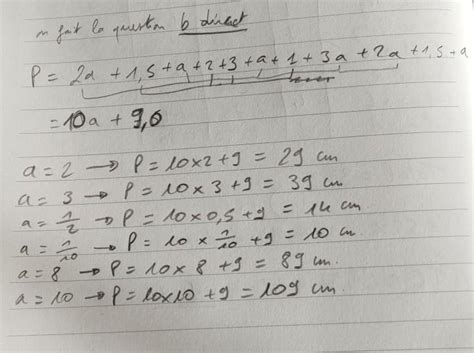 on fait la question b direct
P = 2a + 1,5 + a + 2 + 3 + a + 1 + 3a + 2a + 1,5 + a
= 10a + 9,0
a = 2 → P = 10 × 2 + 9 = 29 cm
a = 3 → P = 10 × 3 + 9 = 39 cm
a = 1/2 → P = 10 × 0,5 + 9 = 14 cm
a = 1/10 → P = 10 × 1/10 + 9 = 10 cm.
a = 8 → P = 10 × 8 + 9 = 89 cm.
a = 10 → P = 10 × 10 + 9 = 109 cm